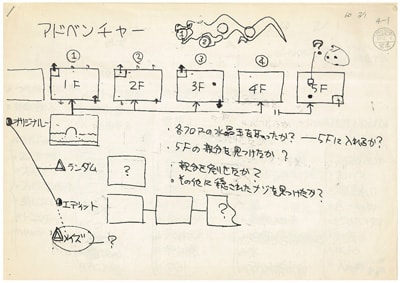 アドベンチャー
4-1
① ② ③ ④ ?
1F 2F 3F 4F 5F
オリジナル
・各フロアの水晶玉をとったか? — 5Fに入れるか?
・5Fの敵分を見つけたか?
・敵分を倒せたか?
・その他に隠されたナゾを見つけたか?
ランダム ?
エディット ?
メイズ ?